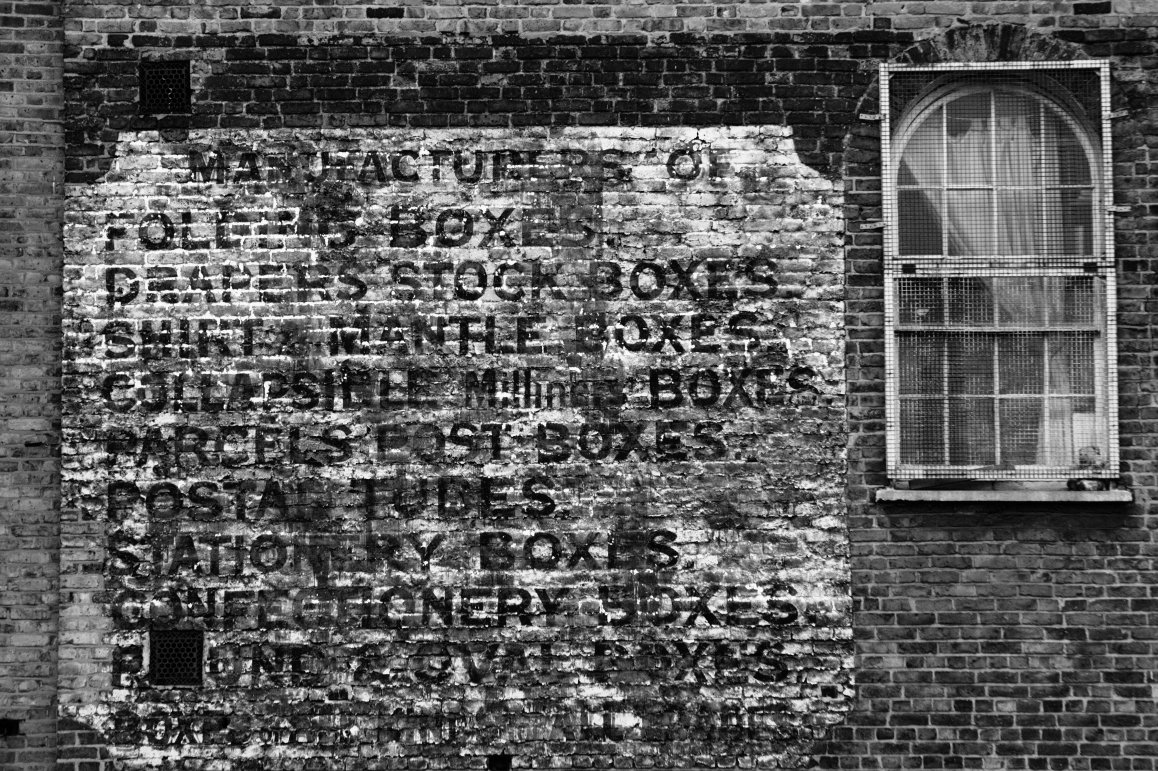 MANUFACTURERS OF
FOLDING BOXES.
DRAPERS STOCK BOXES.
SHIRT & MANTLE BOXES.
COLLAPSIBLE Millinery BOXES.
PARCELS POST BOXES.
POSTAL TUBES.
STATIONERY BOXES.
CONFECTIONERY BOXES.
ROUND & OVAL BOXES.
BOXES